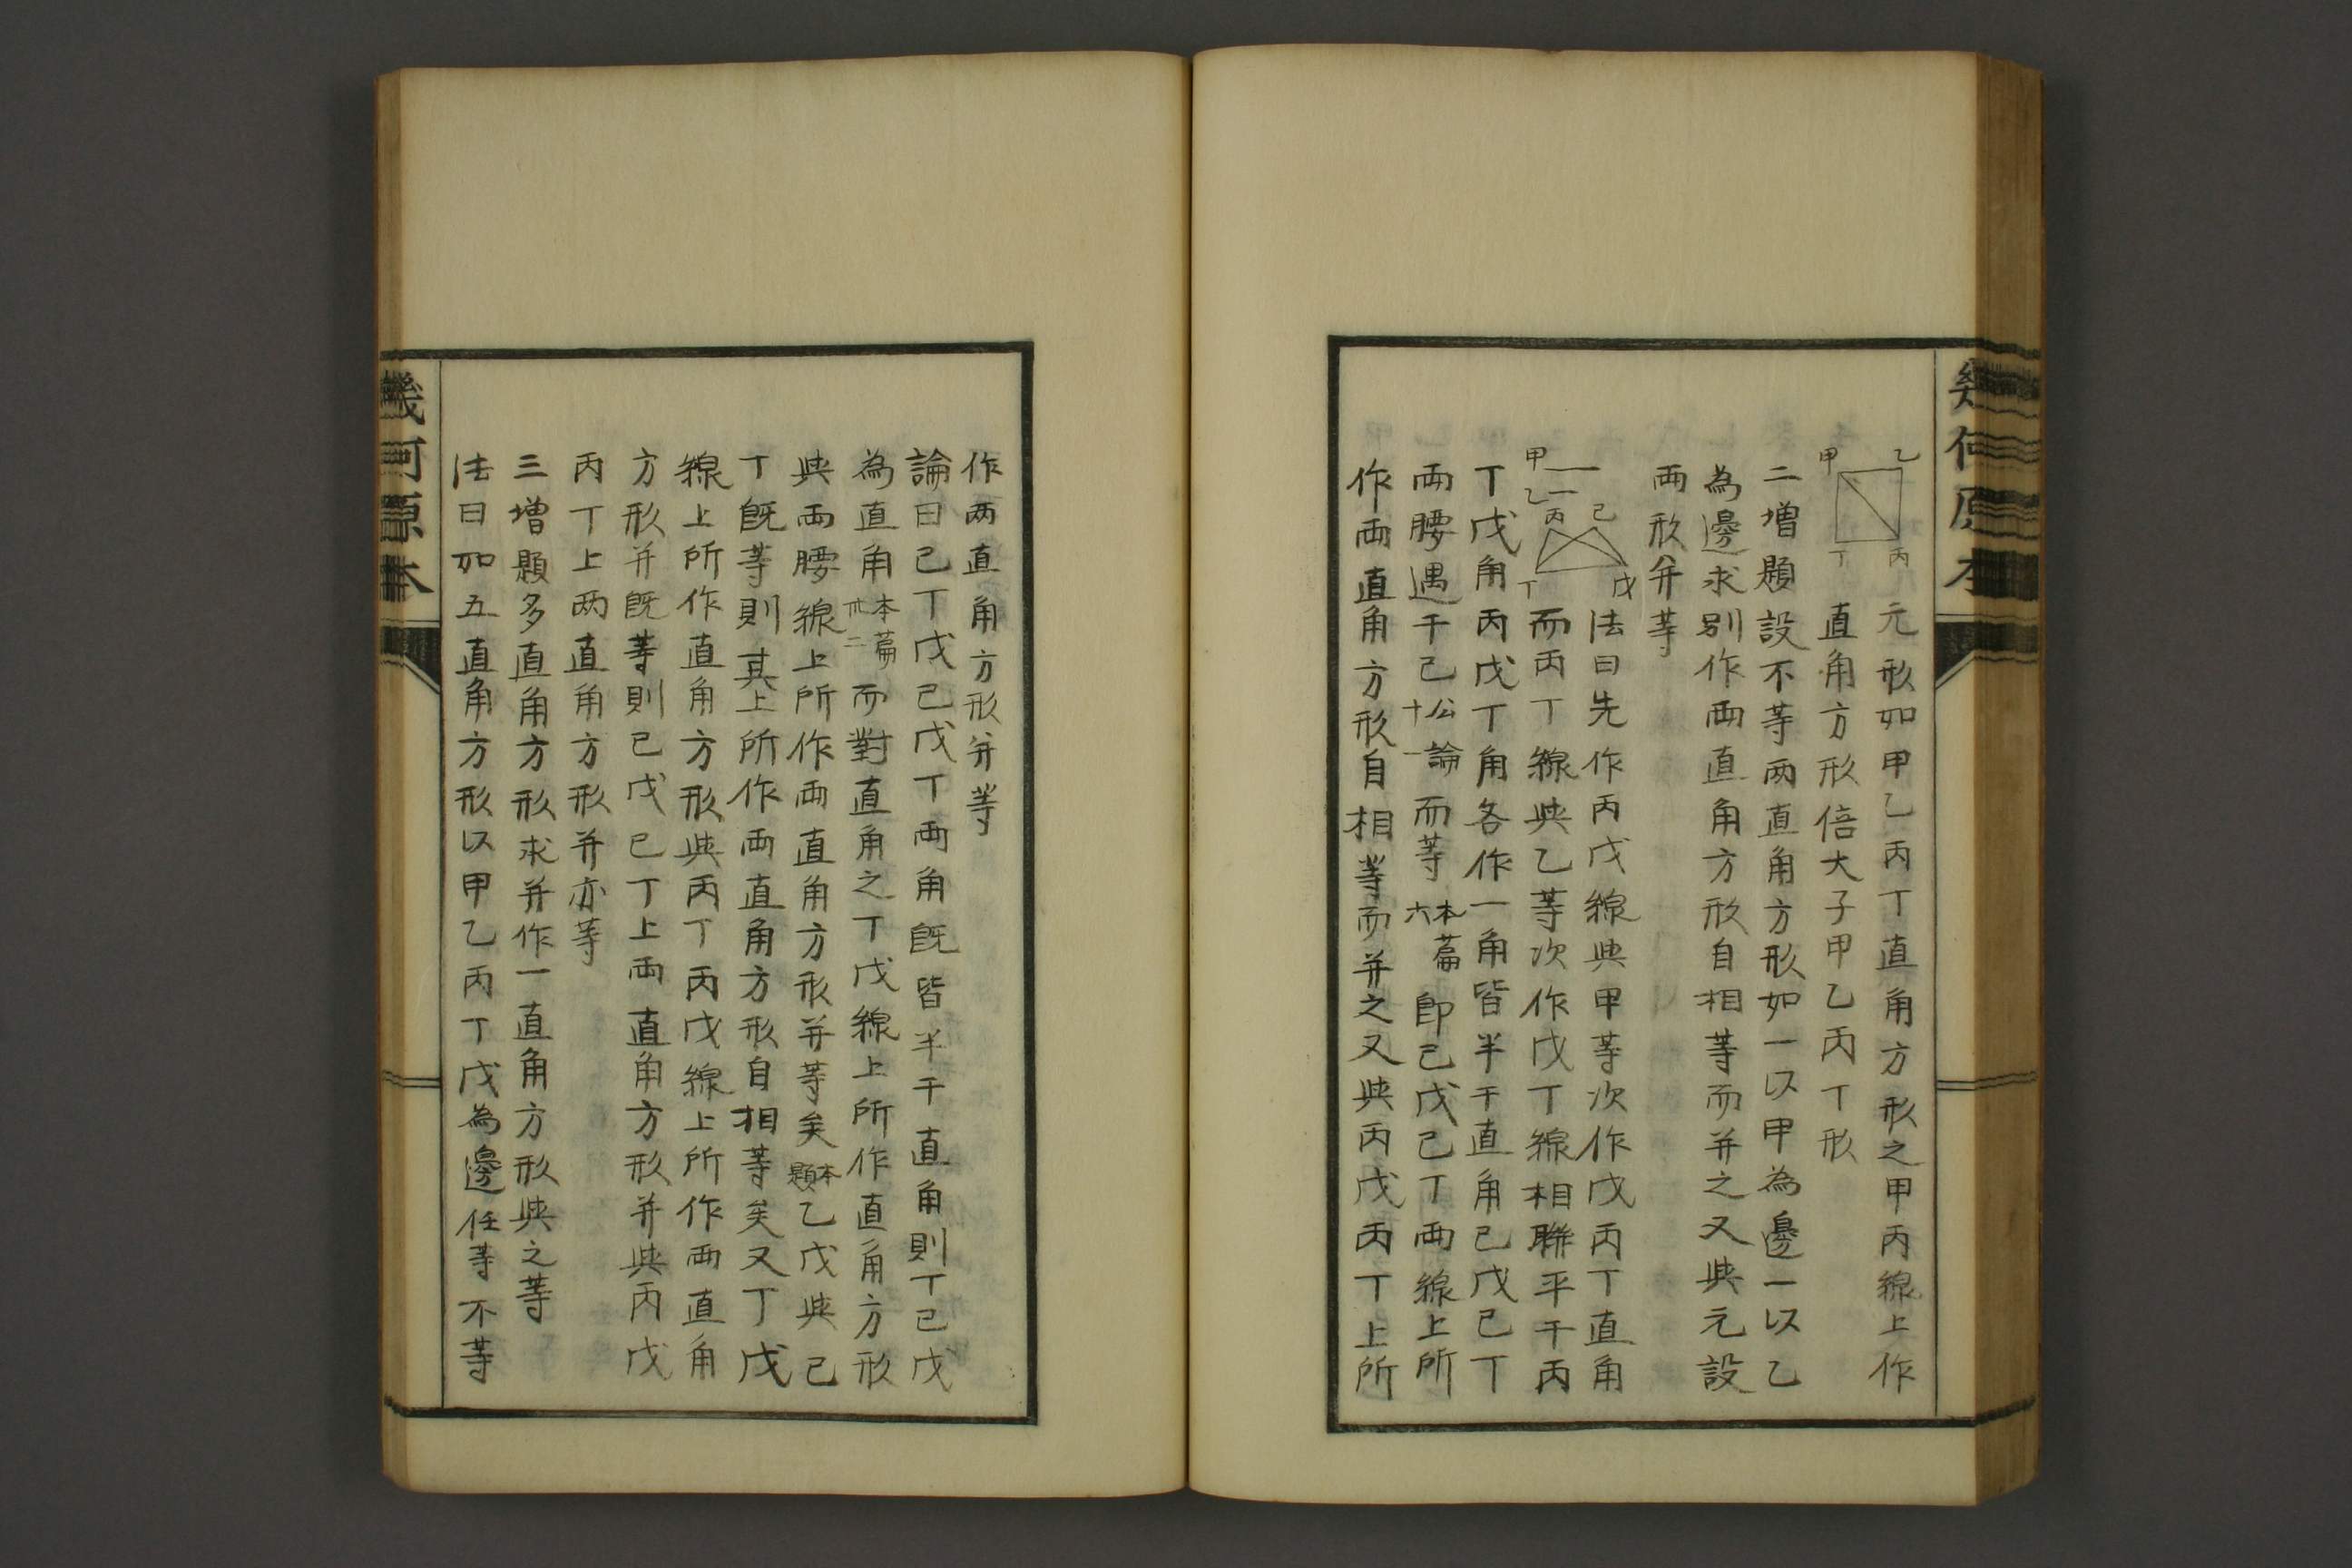 幾何原本
乙
甲
丙
丁
元形如甲乙丙丁直角方形之甲丙線上作
直角方形倍大子甲乙丙丁形
二增題設不等两直角方形如一以甲為邊一以乙
為邊求别作両直角方形自相等而并之又與元設
両形并等
甲
乙
丙
己
丁
戊
法曰先作丙戊線與甲等次作戊丙丁直角
而丙丁線與乙等次作戊丁線相聯平于丙
丁戊角丙戊丁角各作一角皆半于直角己戊己丁
両腰遇于己公論十一而等本篇六即己戊己丁両線上所
作両直角方形自相等而并之又與丙戊丙丁上所
作两直角方形并等
論曰己丁戊己戊丁両角既皆半于直角則丁己戊
為直角本篇卅二而對直角之丁戊線上所作直角方形
與両腰線上所作両直角方形并等矣本題乙戊與己
丁既等則其上所作両直角方形自相等矣又丁戊
線上所作直角方形與丙丁丙戊線上所作両直角
方形并既等則己戊己丁上両直角方形并與丙戊
丙丁上两直角方形并亦等
三增題多直角方形求并作一直角方形與之等
法曰如五直角方形以甲乙丙丁戊為邊任等不等
幾何原本